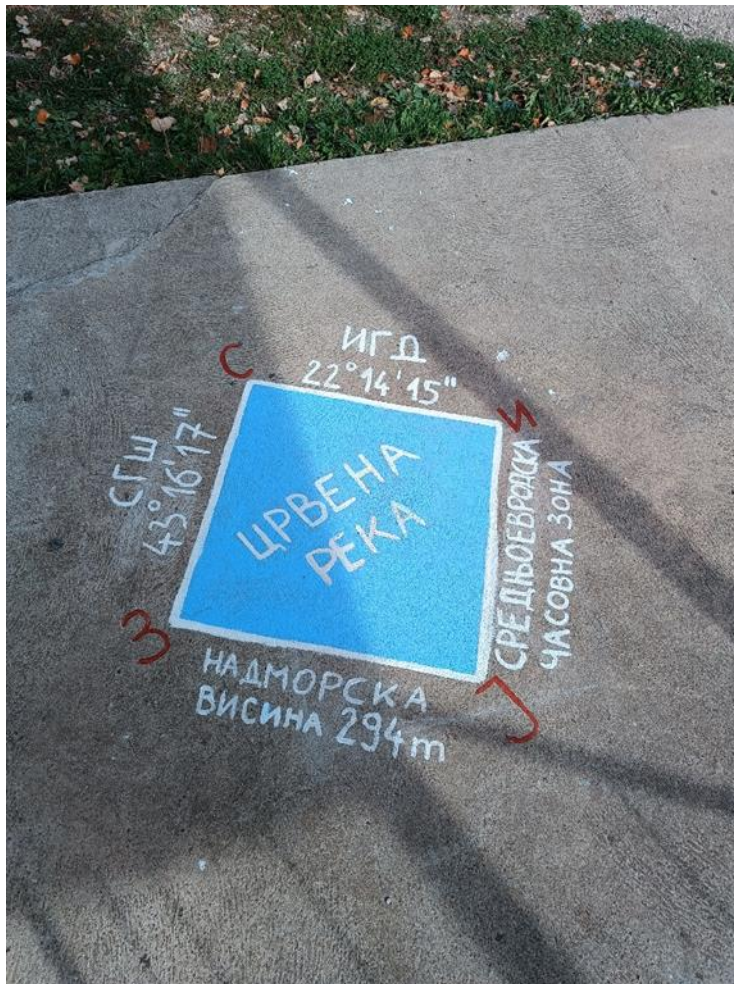 С
ИГД
22°14'15"
И
СГШ
43°16'17"
ЦРВЕНА
РЕКА
СРЕДЊОЕВРОПСКА
ЧАСОВНА ЗОНА
З
НАДМОРСКА
ВИСИНА 294m
Ј